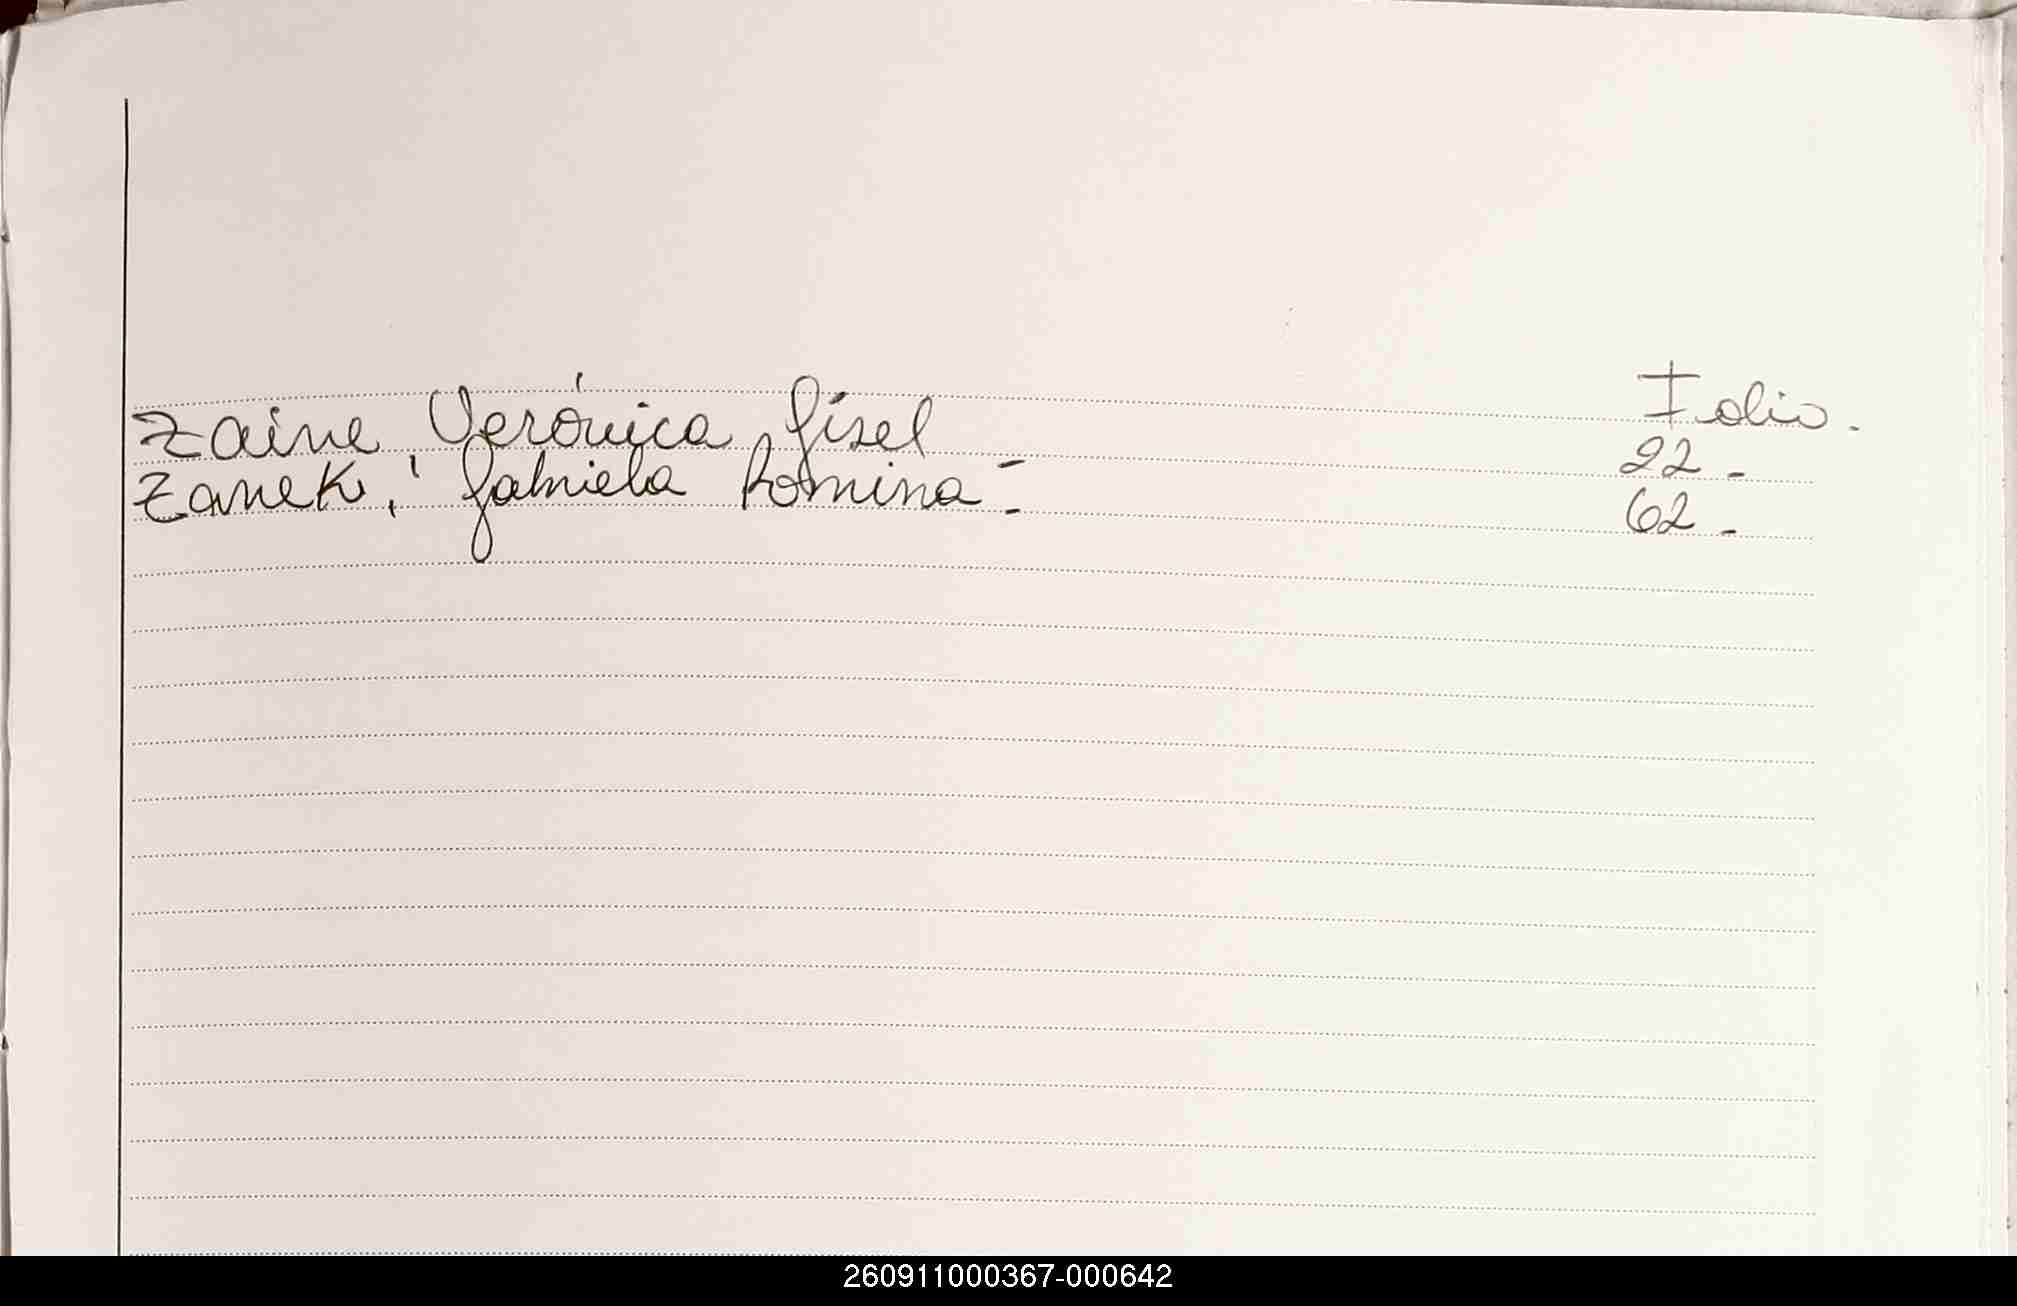 Folio.
Zaine Verónica Gisel - 22 -
Zanek, Gabriela Romina - 62 -
260911000367-000642